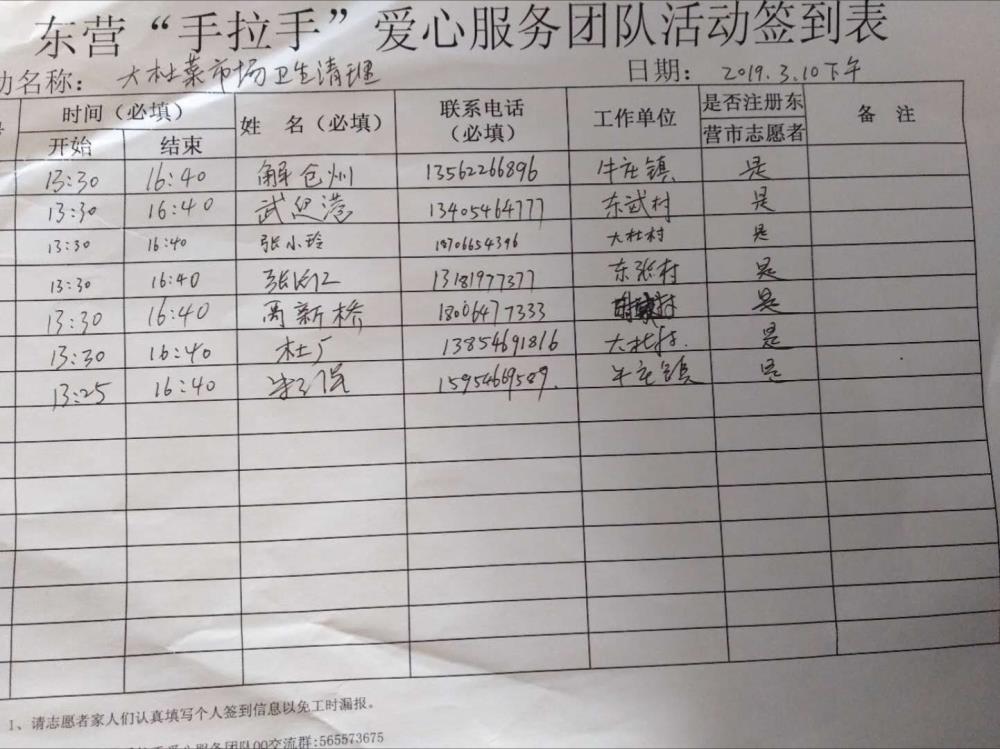 东营“手拉手”爱心服务团队活动签到表
动名称：大杜菜市场卫生清理 日期：2019.3.10下午
时间（必填） 姓 名（必填） 联系电话（必填） 工作单位 是否注册东营市志愿者 备 注
开始 结束
13:30 16:40 解仓州 13562266896 牛庄镇 是
13:30 16:40 武 港 13405464777 东武村 是
13:30 16:40 张小玲 18706654396 大杜村 是
13:30 16:40 张 江 13181977377 东张村 是
13:30 16:40 高新桥 18006477333 村 是
13:30 16:40 杜广 13854691816 大杜村. 是
13:25 16:40 15954669589. 牛庄镇 是
1、请志愿者家人们认真填写个人签到信息以免工时漏报。
爱心服务团队QQ交流群:565573675